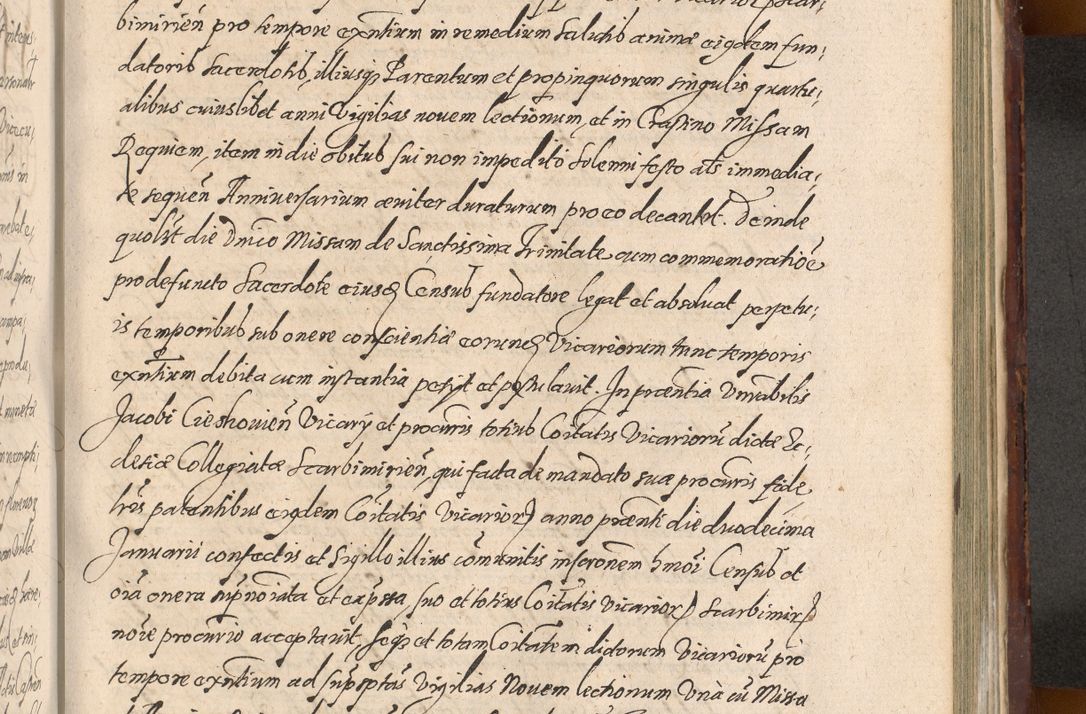 bimirień pro tempore exñtium in remedium salutis animæ eiędem fun,
datoris Sacerdotis, illiusqȝ Parentum et propinquorum singulis quartu,
alibus cuiuslibet anni Vigilias novem lectionum, et in Crastino Missam
Requiem, item in die obitus sui non impedito solemni festo als immedia,
te sequeñ Anniversarium æviter duraturum pro eo decantet. Deinde
quolibet die Dnico Missam de Sanctissima Trinitate cum commemoratiõe
pro defuncto Sacerdote eiusq Census fundatore legat et absolvat perpetu,
is temporibus sub onere conscientiæ eorundq Vicariorum tunc temporis
exñtium debita cum instantia petijt et postulavit. In præntia Vnrabilis
Jacobi Cieshovień Vicarÿ et procuris totius Coitatis Vicariorũ dictæ Ec,
clesiæ Collegiatæ Scarbimirień, qui facta de mandato suæ procuris fide
lrẽs patentibus eiędem Coitatis Vicarior anno præñti die duodecima
Januarii confectis et Sigillo illius cõmunitis inscronem hmõi Census et
oĩa onera supnoĩata et exp̃ssa, suo et totius Coitatis Vicarior Scarbimir
nõie procurio acceptavit, seqȝ et totam Coitatem dictorum Vicariorũ pro
tempore exñtium ad supsptas Vigilias Novem lectionum Vna cũ Missa